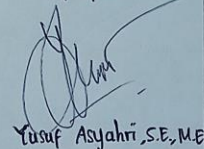 Yusuf Asyahri, S.E., M.E